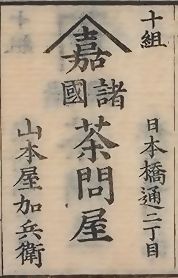 十組
日本橋通二丁目
嘉
諸國
茶問屋
山本屋加兵衛